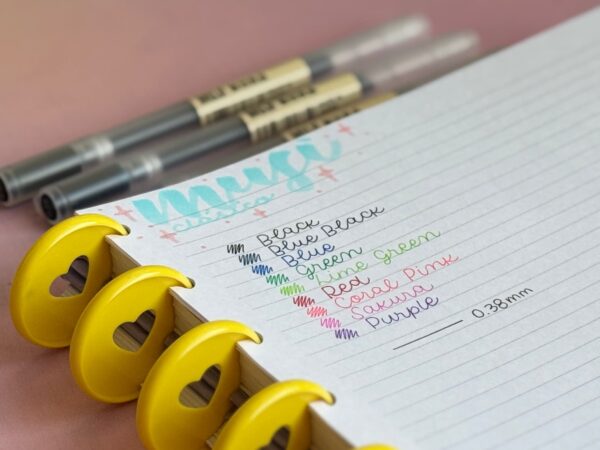 muji
Black
Blue Black
Blue
Green
Lime Green
Red
Coral Pink
Sakura
Purple
0.38mm